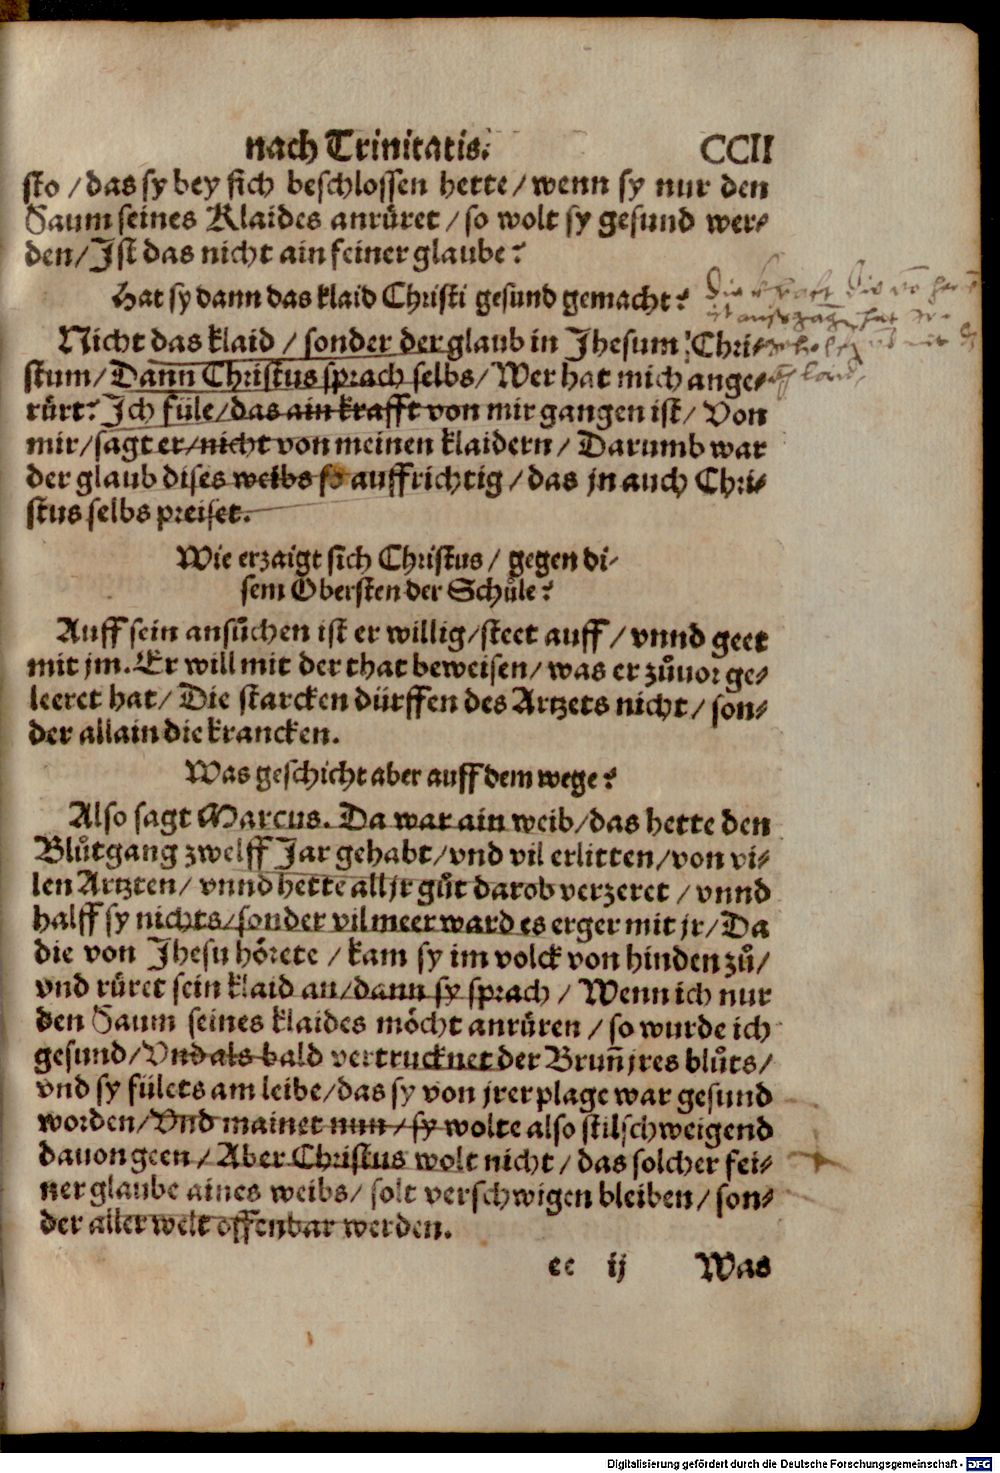 nach Trinitatis. CCII
sto / das sy bey sich beschlossen hette / wenn sy nur den
Saum seines Klaides anrüret / so wolt sy gesund wer-
den / Ist das nicht ain feiner glaube?
Hat sy dann das klaid Christi gesund gemacht?
Nicht das klaid / sonder der glaub in Jhesum Chri-
stum / Dañn Christus sprach selbs / Wer hat mich ange-
rürt? Ich füle / das ain krafft von mir gangen ist / Von
mir / sagt er / nicht von meinen klaidern / Darumb war
der glaub dises weibs so auffrichtig / das jn auch Chri-
stus selbs preiset.
Wie erzaigt sich Christus / gegen di-
sem Obersten der Schůle?
Auff sein ansůchen ist er willig / steet auff / vnnd geet
mit jm. Er will mit der that beweisen / was er zůuor ge-
leeret hat / Die starcken dürffen des Artzets nicht / son-
der allain die krancken.
Was geschicht aber auff dem wege?
Also sagt Marcus. Da war ain weib / das hette den
Blůtgang zwelff Jar gehabt / vnd vil erlitten / von vi-
len Artzten / vnnd hette all jr gůt darob verzeret / vnnd
halff sy nichts / sonder vil meer ward es erger mit jr / Da
die von Jhesu hörete / kam sy im volck von hinden zů /
vnd rüret sein klaid an / dann sy sprach / Wenn ich nur
den Saum seines klaides möcht anrüren / so wurde ich
gesund / Vnd als bald vertrucknet der Bruñ jres blůts /
vnd sy fülets am leibe / das sy von jrer plage war gesund
worden / Vnd mainet nun / sy wolte also stilschweigend
dauon geen / Aber Christus wolt nicht / das solcher fei-
ner glaube aines weibs / solt verschwigen bleiben / son-
der aller welt offenbar werden.
ee ij Was
Digitalisierung gefördert durch die Deutsche Forschungsgemeinschaft - DFG